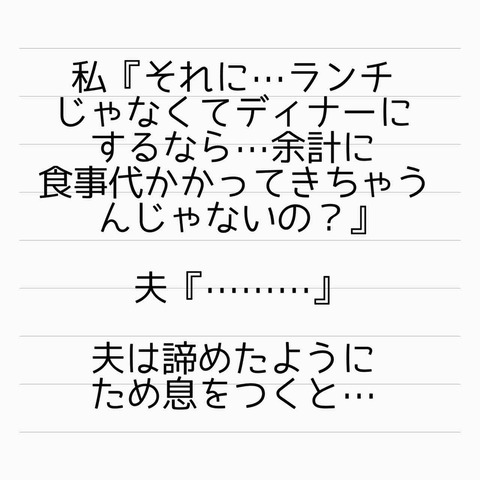 私『それに…ランチ
じゃなくてディナーに
するなら…余計に
食事代かかってきちゃう
んじゃないの？』
夫『………』
夫は諦めたように
ため息をつくと…